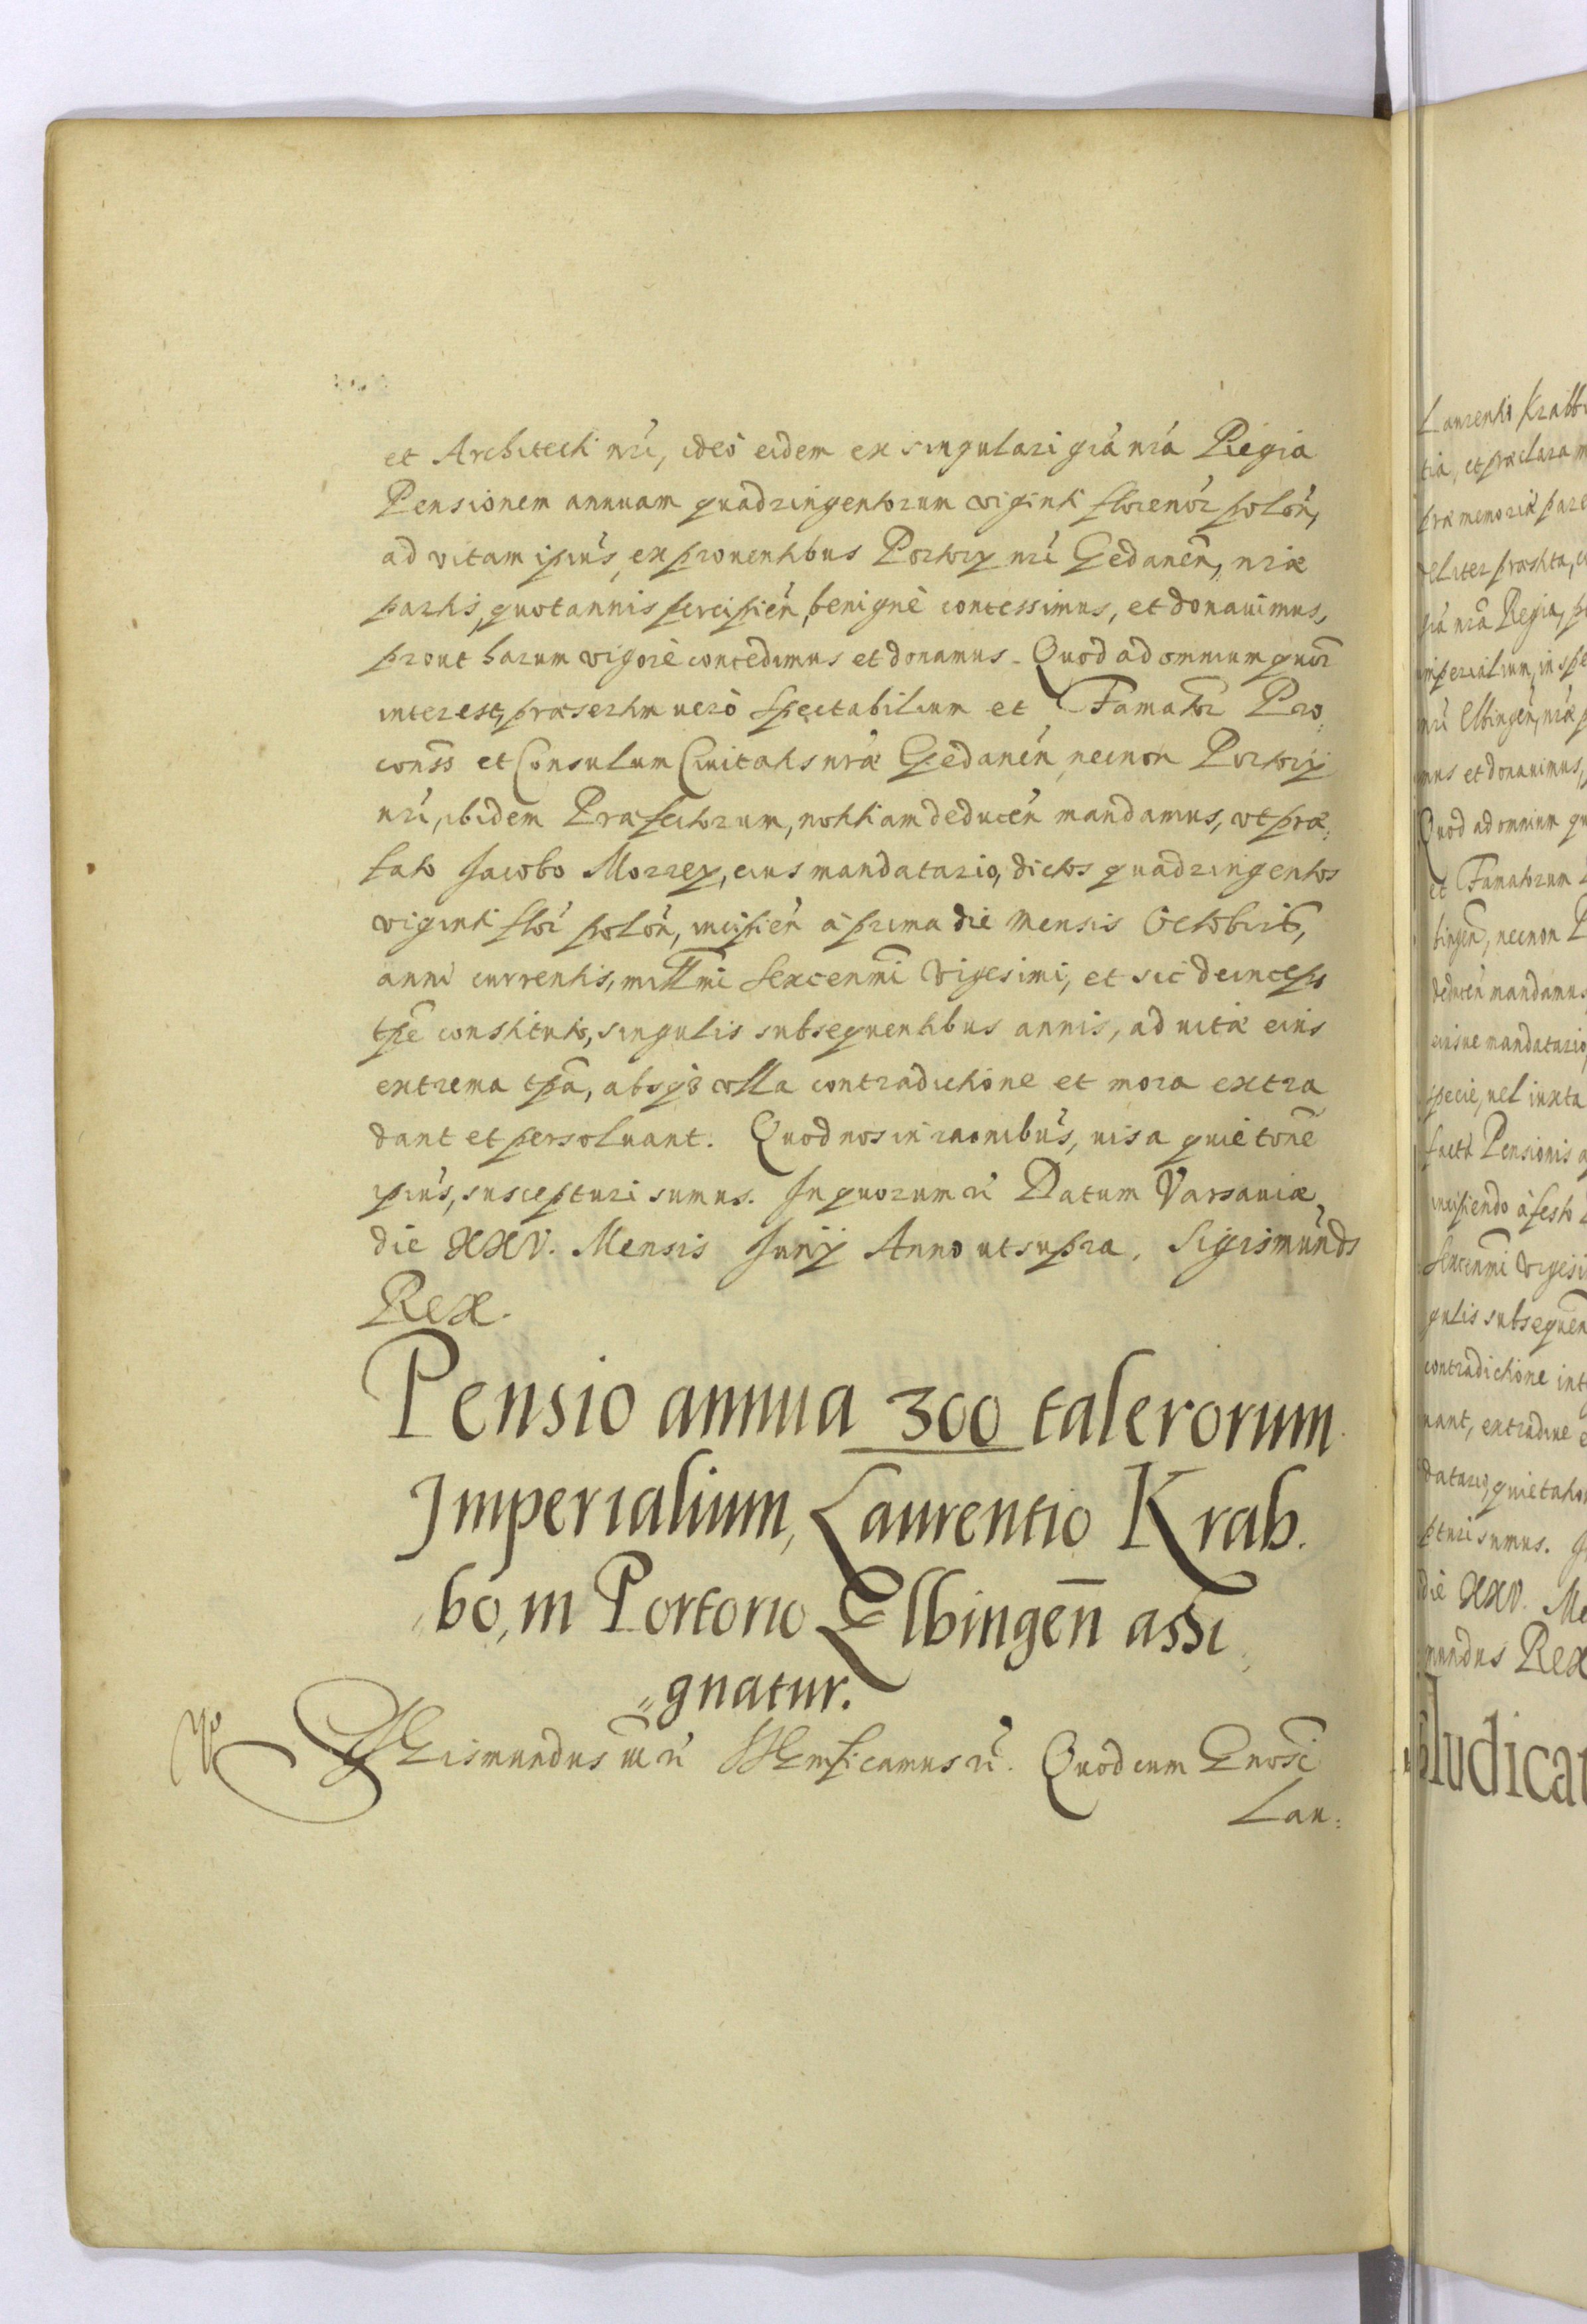 et Architecti nri, ideo eidem ex singulari gra nra Regia
Pensionem annuam quadringentorum viginti florenor polon,
ad vitam ipius, ex prouentibus Portorij nri Gedanen, nrae
partis, quotannis percipien, benignè concessimus, et donauimus,
prout harum vigore concedimus et donamus. Quod ad omnium quor
interest, praesertim uerò Spectabilium et Famator Pro
conss et Consulum Ciuitatis nrae Gedanen, necnon Portorij
nri, ibidem Praefectorum, notitiam deducen mandamus, ut prae:
fato Jacobo Morrey, eius mandatario, dictos quadringentos
viginti flor polon, incipien à prima die Mensis Octobris,
anni currentis, millmi Sexcenmi Vigesimi, et sic deinceps
tpe constituto, singulis subsequentibus annis, ad uitae eius
extrema tpa, absq3 ulla contradictione et mora extra
dant et persoluant. Quod nos in raonibus, uisa quietone
ipius, suscepturi sumus. In quorum rei Datum Varsauiae,
die XXV. Mensis Junij Anno ut supra. Sigismunds
Rex.
Pensio annua 300 talerorum
Imperialium, Laurentio Krab.
bo, in Portorio Elbingen assi
gnatur.
SIGismundus III rc SIGnificamus rc. Quod cum Gnosi
Lau:
Laurentio Krabb
tia, et praeclara m
prae memoriae pare
eliter praestita, e
gra nra Regia, p
imperialium, in spe
nri Elbingen, nrae p
mus et donauimus,
Quod ad omnium qu
et Famatorum
bingen, necnon P
deducen mandamus
eiusue mandatario
specie, uel iuxta
factae Pensionis a
incipiendo à festo
Sexcenmi Vigesi
gulis subsequen
contradictione int
uant, extradive e
datario, quietatio
pturi sumus. J
die XXV. Me
mundus Rex
ludicat